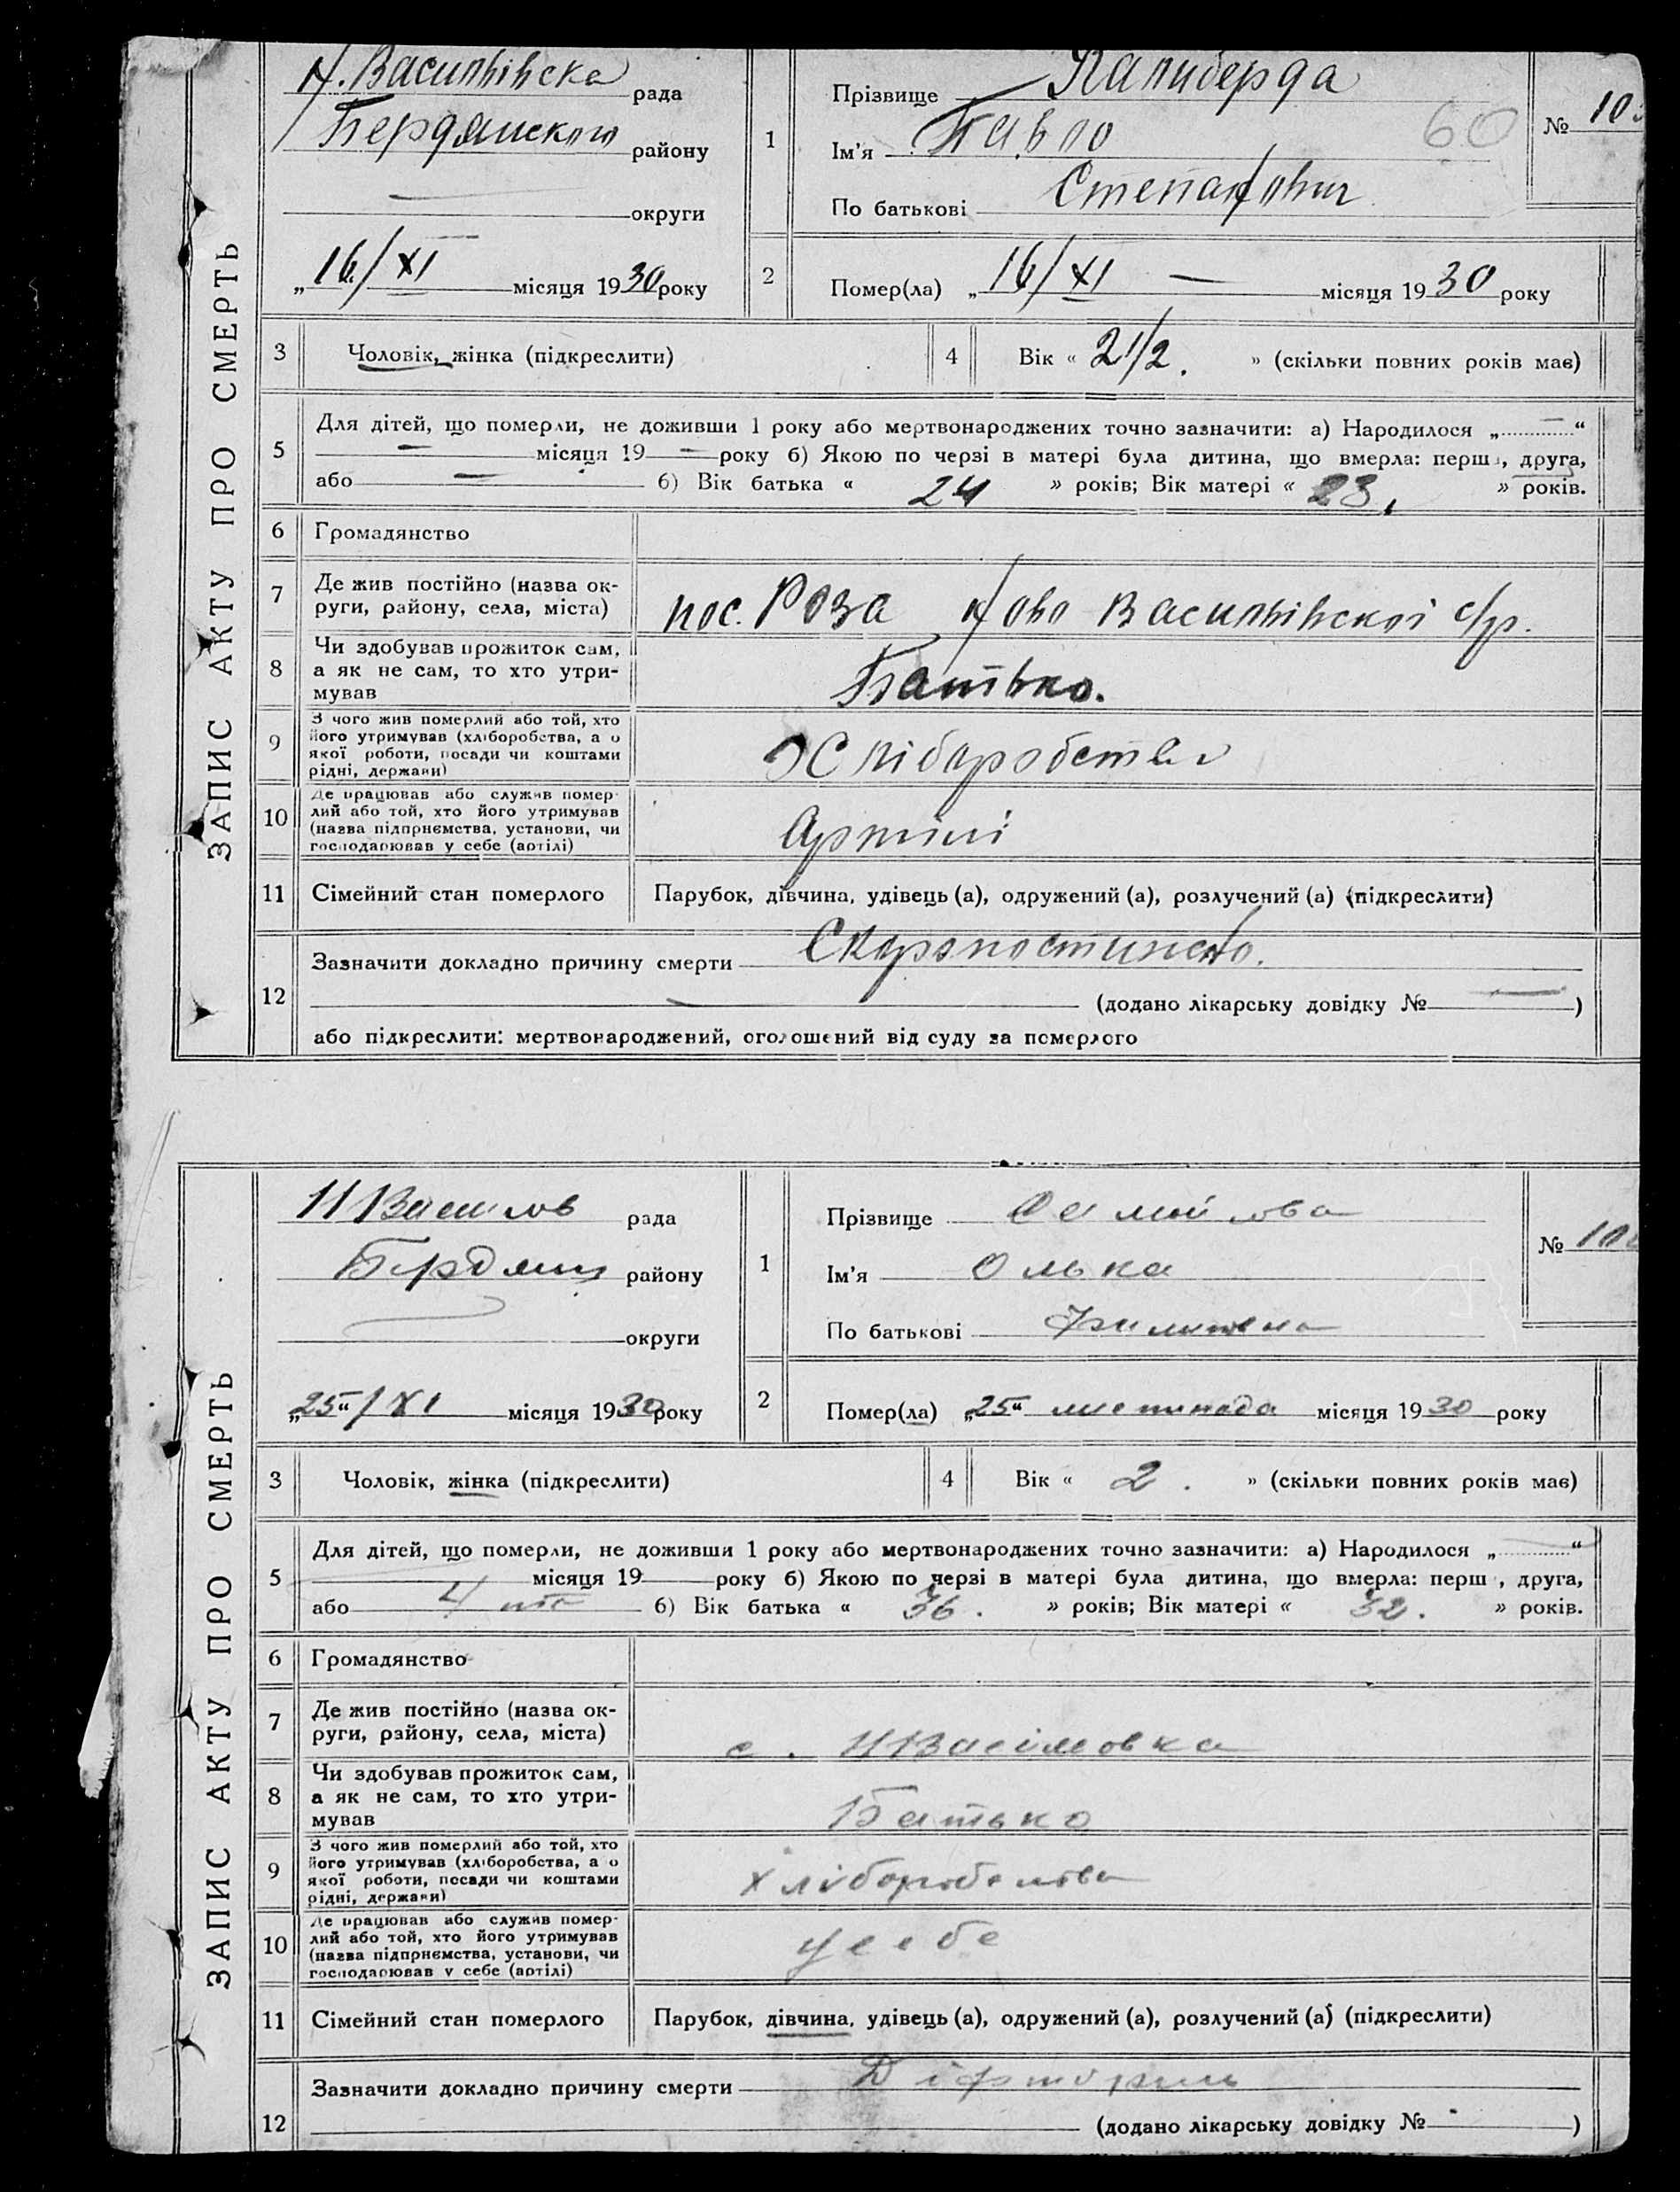 ЗАПИС АКТУ ПРО СМЕРТЬ
Н. Васильівска рада
Бердянского району
округи
„16/XI місяця 1930 року
1
Прізвище Палиберда
Ім'я Павло
60
По батькові Степанович
№ 10
2
Помер(ла) „16/XI — місяця 1930 року
3 Чоловік, жінка (підкреслити)
4 Вік « 2 1/2. » (скільки повних років має)
5
Для дітей, що померли, не доживши 1 року або мертвонароджених точно зазначити: а) Народилося „ — “
— місяця 19 — року б) Якою по черзі в матері була дитина, що вмерла: перш , друга,
або — б) Вік батька « 24 » років; Вік матері « 23. » років.
6 Громадянство
7 Де жив постійно (назва ок-
руги, району, села, міста)
пос. Роза Ново Васильівскої с/р.
8 Чи здобував прожиток сам,
а як не сам, то хто утри-
мував
Батько.
9 З чого жив померлий або той, хто
його утримував (хліборобства, а о
якої роботи, посади чи коштами
рідні, держави)
Хліборобства
10 Де працював або служив помер-
лий або той, хто його утримував
(назва підприємства, установи, чи
господарював у себе (артілі)
Артілі
11 Сімейний стан померлого
Парубок, дівчина, удівець (а), одружений (а), розлучений (а) (підкреслити)
12
Зазначити докладно причину смерти Скоропостижно.
— (додано лікарську довідку № — )
або підкреслити: мертвонароджений, оголошений від суду за померлого
ЗАПИС АКТУ ПРО СМЕРТЬ
Н Василів рада
Бердянц району
округи
„25“/XI місяця 1930 року
1
Прізвище Самойлова
Ім'я Олька
По батькові Филиповна
№ 10
2
Помер(ла) „25“ листопада місяця 1930 року
3 Чоловік, жінка (підкреслити)
4 Вік « 2. » (скільки повних років має)
5
Для дітей, що померли, не доживши 1 року або мертвонароджених точно зазначити: а) Народилося „ “
місяця 19 року б) Якою по черзі в матері була дитина, що вмерла: перш , друга,
або 4 б) Вік батька « 36. » років; Вік матері « 32. » років.
6 Громадянство
7 Де жив постійно (назва ок-
руги, району, села, міста)
с. НВасіловка
8 Чи здобував прожиток сам,
а як не сам, то хто утри-
мував
Батько
9 З чого жив померлий або той, хто
його утримував (хліборобства, а о
якої роботи, посади чи коштами
рідні, держави)
хліборобства
10 Де працював або служив помер-
лий або той, хто його утримував
(назва підприємства, установи, чи
господарював у себе (артілі)
у себе
11 Сімейний стан померлого
Парубок, дівчина, удівець (а), одружений (а), розлучений (а) (підкреслити)
12
Зазначити докладно причину смерти Діфторит
(додано лікарську довідку № )